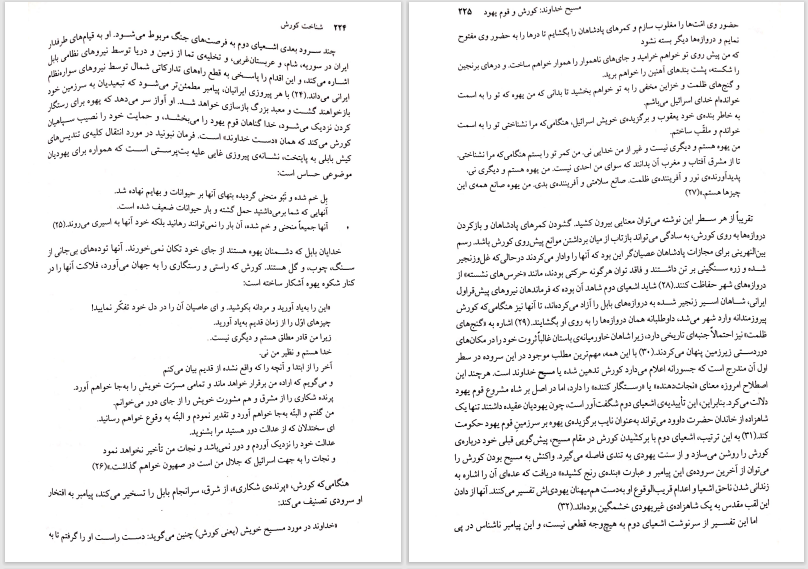 ۲۲۴ شناخت کورش
چند سرود بعدی اشعیای دوم به فرصت‌های جنگ مربوط می‌شود. او به قیام‌های طرفدار
ایران در سوریه، شام، و عربستان‌غربی، و تخلیه‌ی تما از زمین و دریا توسط نیروهای نظامی بابل
اشاره می‌کند، و این اقدام را پاسخی به قطع راه‌های تدارکاتی شمال توسط نیروهای سواره‌نظام
ایرانی می‌داند.(۲۴) با هر پیروزی ایرانیان، پیامبر مطمئن‌تر می‌شود که تبعیدیان به سرزمین خود
بازخواهند گشت و معبد بزرگ بازسازی خواهد شد. او آواز سر می‌دهد که یهوه برای رستگار
کردن نزدیک می‌شود، خدا گناهان قوم یهود را می‌بخشد، و حمایت خود را نصیب سپاهیان
کورش می‌کند که همان «دست خداوند» است. فرمان نبونید در مورد انتقال کلیه‌ی تندیس‌های
کیش بابلی به پایتخت، نشانه‌ی پیروزی غایی علیه بت‌پرستی است که همواره برای یهودیان
موضوعی حساس است:
بِل خم شده و نَبو منحنی گردیده بتهای آنها بر حیوانات و بهایم نهاده شد.
آنهایی که شما برمی‌داشتید حمل گشته و بار حیوانات ضعیف شده است.
آنها جمیعاً منحنی و خم شده، آن بار را نمی‌توانند رهانید بلکه خود آنها به اسیری می‌روند.(۲۵)
خدایان بابل که دشمنان یهوه هستند از جای خود تکان نمی‌خورند. آنها توده‌های بی‌جانی از
سنگ، چوب، و گل هستند. کورش که راستی و رستگاری را به جهان می‌آورد، فلاکت آنها را در
کنار شکوه یهوه آشکار ساخته است:
«این را به‌یاد آورید و مردانه بکوشید. و ای عاصیان آن را در دل خود تفکّر نمایید!
چیزهای اوّل را از زمان قدیم به‌یاد آورید.
زیرا من قادر مطلق هستم و دیگری نیست.
خدا هستم و نظیر من نی.
آخر را از ابتدا و آنچه را که واقع نشده از قدیم بیان می‌کنم
و می‌گویم که اراده من برقرار خواهد ماند و تمامی مسرّت خویش را به‌جا خواهم آورد.
پرنده شکاری را از مشرق و هم مشورت خویش را از جای دور می‌خوانم.
من گفتم و البتّه به‌جا خواهم آورد و تقدیر نمودم و البتّه به وقوع خواهم رسانید.
ای سختدلان که از عدالت دور هستید مرا بشنوید.
عدالت خود را نزدیک آوردم و دور نمی‌باشد و نجات من تأخیر نخواهد نمود
و نجات را به جهت اسرائیل که جلال من است در صهیون خواهم گذاشت.»(۲۶)
هنگامی‌که کورش، «پرنده‌ی شکاری»، از شرق، سرانجام بابل را تسخیر می‌کند، پیامبر به افتخار
او سرودی تصنیف می‌کند:
«خداوند در مورد مسیح خویش (یعنی کورش) چنین می‌گوید: دست راست او را گرفتم تا به
مسیح خداوند: کورش و قوم یهود ۲۲۵
حضور وی امّت‌ها را مغلوب سازم و کمرهای پادشاهان را بگشایم تا درها را به حضور وی مفتوح
نمایم و دروازه‌ها دیگر بسته نشود
که من پیش روی تو خواهم خرامید و جای‌های ناهموار را هموار خواهم ساخت. و درهای برنجین
را شکسته، پشت بندهای آهنین را خواهم برید.
و گنج‌های ظلمت و خزاین مخفی را به تو خواهم بخشید تا بدانی که من یهوه که تو را به اسمت
خوانده‌ام خدای اسرائیل می‌باشم.
به خاطر بنده‌ی خود یعقوب و برگزیده‌ی خویش اسرائیل، هنگامی‌که مرا نشناختی تو را به اسمت
خواندم و ملقّب ساختم.
من یهوه هستم و دیگری نیست و غیر از من خدایی نی. من کمر تو را بستم هنگامی‌که مرا نشناختی.
تا از مشرق آفتاب و مغرب آن بدانند که سوای من احدی نیست. من یهوه هستم و دیگری نی.
پدیدآورنده‌ی نور و آفریننده‌ی ظلمت. صانع سلامتی و آفریننده‌ی بدی. من یهوه صانع همه‌ی این
چیزها هستم.»(۲۷)
تقریباً از هر سطر این نوشته می‌توان معنایی بیرون کشید. گشودن کمرهای پادشاهان و بازکردن
دروازه‌ها به روی کورش، به سادگی می‌تواند بازتاب از میان برداشتن موانع پیش‌روی کورش باشد. رسم
بین‌النهرینی برای مجازات پادشاهان عصیان‌گر این بود که آنها را وادار می‌کردند درحالی‌که غل‌وزنجیر
شده و زره سنگینی بر تن داشتند و فاقد توان هرگونه حرکتی بودند، مانند «خرس‌های نشسته» از
دروازه‌های شهر حفاظت کنند.(۲۸) شاید اشعیای دوم شاهد آن بوده که فرماندهان نیروهای پیش‌قراول
ایرانی، شاهان اسیر زنجیر شده به دروازه‌های بابل را آزاد می‌کرده‌اند، تا آنها نیز هنگامی‌که کورش
پیروزمندانه وارد شهر می‌شد، داوطلبانه همان دروازه‌ها را به روی او بگشایند. (۲۹) اشاره به «گنج‌های
ظلمت» نیز احتمالاً جنبه‌ای تاریخی دارد، زیرا شاهان خاورمیانه‌ی باستان غالباً ثروت خود را در مکان‌های
دوردستی زیرزمین پنهان می‌کردند.(۳۰) با این همه، مهم‌ترین مطلب موجود در این سروده در سطر
اول آن مندرج است که جسورانه اعلام می‌دارد کورش تدهین شده یا مسیح خداوند است. هرچند این
اصطلاح امروزه معنای «نجات‌دهنده» یا «رستگار کننده» را دارد، اما در اصل بر شاه مشروع قوم یهود
دلالت می‌کرد. بنابراین، این تأییدیه‌ی اشعیای دوم شگفت‌آور است، چون یهودیان عقیده داشتند تنها یک
شاهزاده از خاندان حضرت داوود می‌تواند به‌عنوان نایب برگزیده‌ی یهوه بر سرزمین قوم یهود حکومت
کند.(۳۱) به این ترتیب، اشعیای دوم با برکشیدن کورش در مقام مسیح، پیش‌گویی قبلی خود درباره‌ی
کورش را روشن می‌سازد و از سنت یهودی به تندی فاصله می‌گیرد. واکنش به مسیح بودن کورش را
می‌توان از آخرین سروده‌ی این پیامبر و عبارت «بنده‌ی رنج کشیده» دریافت که عده‌ای آن را اشاره به
زندانی شدن ناحق اشعیا و اعدام قریب‌الوقوع او به‌دست هم‌میهنان یهودی‌اش تفسیر می‌کنند. آنها از دادن
این لقب مقدس به یک شاهزاده‌ی غیریهودی خشمگین بوده‌اند.(۳۲)
اما این تفسیر از سرنوشت اشعیای دوم به هیچ‌وجه قطعی نیست، و این پیامبر ناشناس در پی